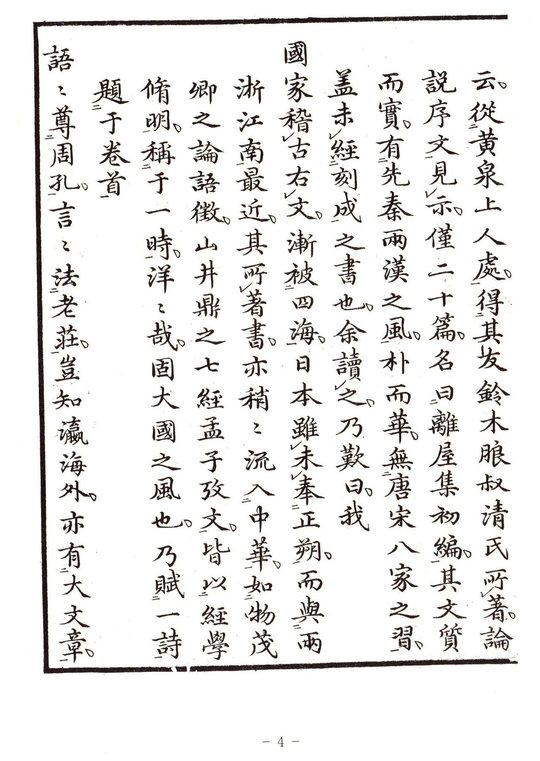 云從黄泉上人處得其友鈴木朖叔清氏所著論
説序文見示僅二十篇名曰離屋集初編其文質
而實有先秦兩漢之風朴而華無唐宋八家之習
盖未經刻成之書也余讀之乃歎曰我
國家稽古右文漸被四海日本雖未奉正朔而與兩
浙江南最近其所著書亦稍〻流入中華如物茂
卿之論語徴山井鼎之七經孟子攷文皆以經學
脩明稱于一時洋〻哉固大國之風也乃賦一詩
題于卷首
語〻尊周孔言〻法老莊豈知瀛海外亦有大文章
- 4 -